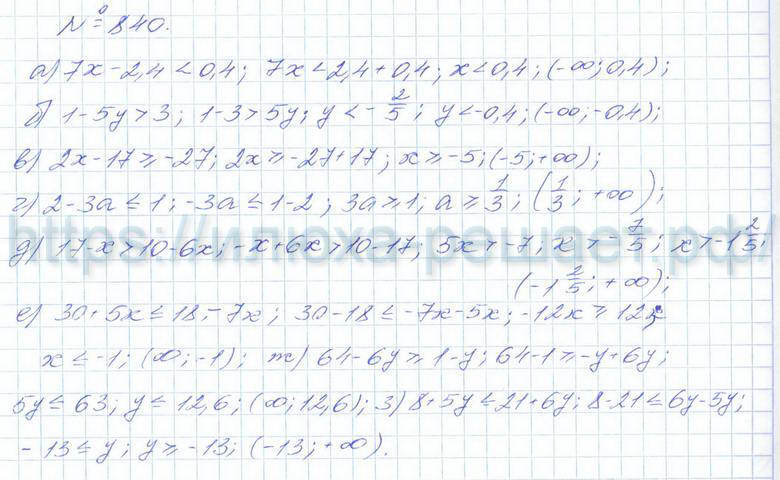 № 840.
а) 7x - 2,4 < 0,4; 7x < 2,4 + 0,4; x < 0,4; (-∞; 0,4);
б) 1 - 5y > 3; 1 - 3 > 5y; y < - 2/5; y < -0,4; (-∞; -0,4);
в) 2x - 17 ≥ -27; 2x ≥ -27 + 17; x ≥ -5; (-5; +∞);
г) 2 - 3a ≤ 1; -3a ≤ 1 - 2; 3a ≥ 1; a ≥ 1/3; (1/3; +∞);
https://илюха-решает.рф/
д) 17 - x > 10 - 6x; -x + 6x > 10 - 17; 5x > -7; x > - 7/5; x > -1 2/5;
(-1 2/5; +∞);
е) 30 + 5x ≤ 18 - 7x; 30 - 18 ≤ -7x - 5x; -12x ≥ 12;
x ≤ -1; (∞; -1); ж) 64 - 6y ≥ 1 - y; 64 - 1 ≥ -y + 6y;
5y ≤ 63; y ≤ 12,6; (∞; 12,6); з) 8 + 5y ≤ 21 + 6y; 8 - 21 ≤ 6y - 5y;
-13 ≤ y; y ≥ -13; (-13; +∞).